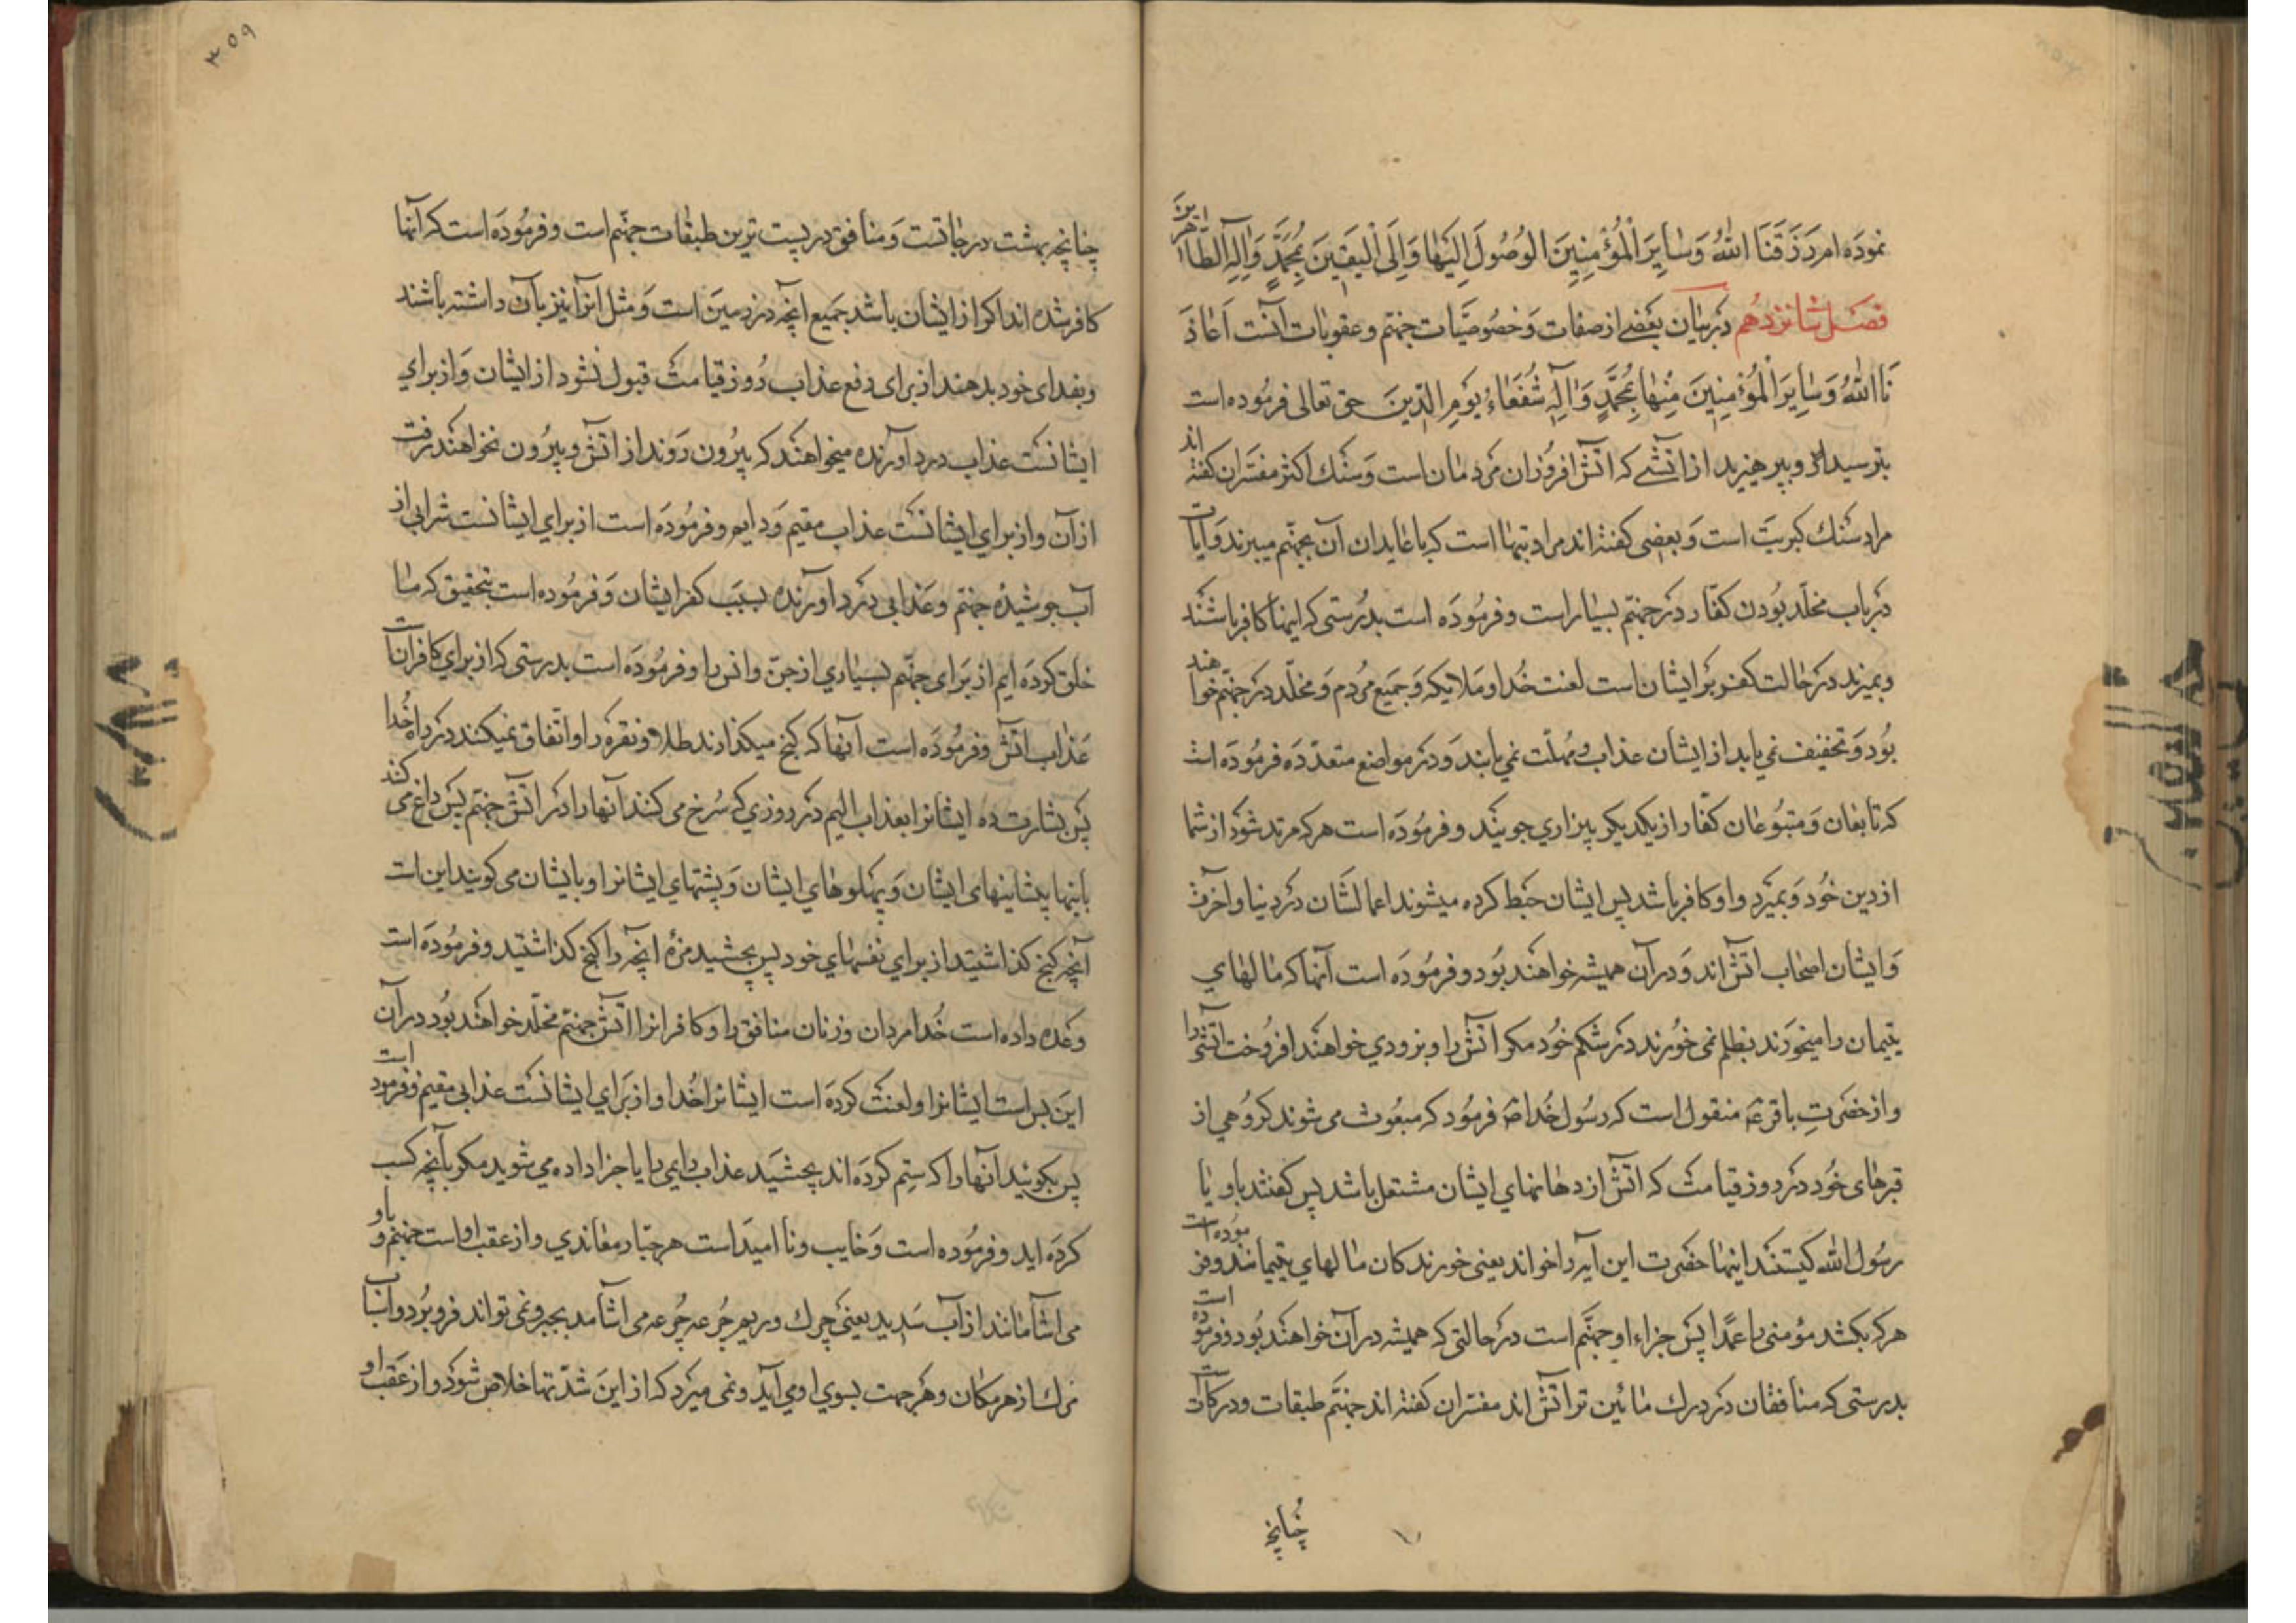 نموده ام رَزَقَنَا اللّٰهُ وَسٰایِرَ الْمُؤْمِنِینَ الوُصُولَ اِلَیْهٰا وَاِلَی الْیَقِینَ بِمُحَمَّدٍ وَاٰلِهِ الطّٰاهرینَ
فصل شانزدهم در بیان بعضی از صفات و خصوصیّات جهنّم و عقوبات آنست اَعٰاذَ
نَا اللّٰهُ وَسٰایِرَ الْمُؤْمِنِینَ مِنْهٰا بِمُحَمَّدٍ وَاٰلِهِ شُفَعٰاءِ یَوْمِ الدِّینَ حق تعالی فرموده است
بترسید و بپرهیزید از آتشی که آتش افروزان مردمان است و سنک اکثر مفسّران کفته اند
مراد سنك کبریت است و بعضی کفته اند مراد بتهااست که با عابدان آن بجهنّم میبرند و آیات
در باب مخلّد بودن کفّار در جهنّم بسیار است و فرموده است بدرستی که اینها کافر باشند
و بمیرند در حالت کفر بر ایشان است لعنت خدا و ملایکه و جمیع مردم و مخلّد در جهنّم خواهند
بود و تخفیف نمی یابد از ایشان عذاب و مهلت نمی یابند و در مواضع متعدّده فرموده است
که تابعان و متبوعان کفّار از یکدیکر بیزاری جویند و فرموده است هر که مرتد شود از شما
از دین خود و بمیرد و او کافر باشد پس ایشان حبط کرده میشوند اعمالشان در دنیا و آخرت
و ایشان اصحاب آتش اند و در آن همیشه خواهند بود و فرموده است آنها که مالهای
یتیمان را میخورند بظلم نمی خورند در شکم خود مکر آتش را و بزودی خواهند افروخت آتشی را
و از حضرتِ باقر ع منقول است که رسول خدا ص فرمود که مبعوث می شوند کروهی از
قبرهای خود در روز قیامت که آتش از دهانهای ایشان مشتعل باشد پس کفتند باو یا
رسول الله کیستند اینها حضرت این آیه را خواند یعنی خورندکان مالهای یتیمانند و فرموده است
هر که بکشد مؤمنی را عمداً پس جزاء او جهنّم است در حالتی که همیشه در آن خواهند بود و فرموده است
بدرستی که منافقان در درك مائین تر آتش اند مفسّران کفته اند جهنّم طبقات و درکات است
چنانچه
۳۵۹
چنانچه بهشت درجاتست و منافق در پست ترین طبقات جهنّم است و فرموده است که آنها
کافر شده اند اکر از ایشان باشد جمیع آنچه در زمین است و مثل آنرا نیز بآن داشته باشند
و بفدای خود بدهند از برای دفع عذاب روز قیامت قبول نشود از ایشان و از برای
ایشانست عذاب درد آورنده میخواهند که بیرون روند از آتش و بیرون نخواهند رفت
از آن و از برای ایشانست عذاب مقیم و دایم و فرموده است از برای ایشانست شرابی از
آب جوشیدهٔ جهنّم و عذابی درد آورنده بسبب کفر ایشان و فرموده است بتحقیق که ما
خلق کرده ایم از برای جهنّم بسیاری از جنّ و انس را و فرموده است بدرستی که از برای کافرانست
عذاب آتش و فرموده است آنها که کنج میکذارند طلا و نقره را و اتّفاق نمیکنند در راه خدا
پس بشارت ده ایشانرا بعذاب الیم در روزی که سرخ می کنند آنها را در آتش جهنّم پس داغ می کنند
باینها پیشانیهای ایشان و پهلوهای ایشان و پشتهای ایشانرا و بایشان می کویند این است
آنچه کنج کذاشتید از برای نفسهای خود پس بچشید مزهٔ آنچه را کنج کذاشتید و فرموده است
وعده داده است خدا مردان و زنان منافق را و کافرانرا آتش جهنّم مخلّد خواهند بود در آن
این بس است ایشانرا و لعنت کرده است ایشانرا خدا و از برای ایشانست عذابی مقیم و فرمود است
پس بکویند آنها را که ستم کرده اند بچشید عذاب دایمی را یا جزا داده می شوید مکر بآنچه کسب
کرده اید و فرموده است و خایب و ناامید است هر جبّار معاندی و از عقب او است جهنّم و باو
می آشامانند از آب سدید یعنی چرك و ریم جرعه جرعه می آشامد بجبر و نمی تواند فرو برد و اسباب
مرك از هر مکان و هر جهت بسوی او می آید و نمی میرد که از این شدّتها خلاص شود و از عقب او